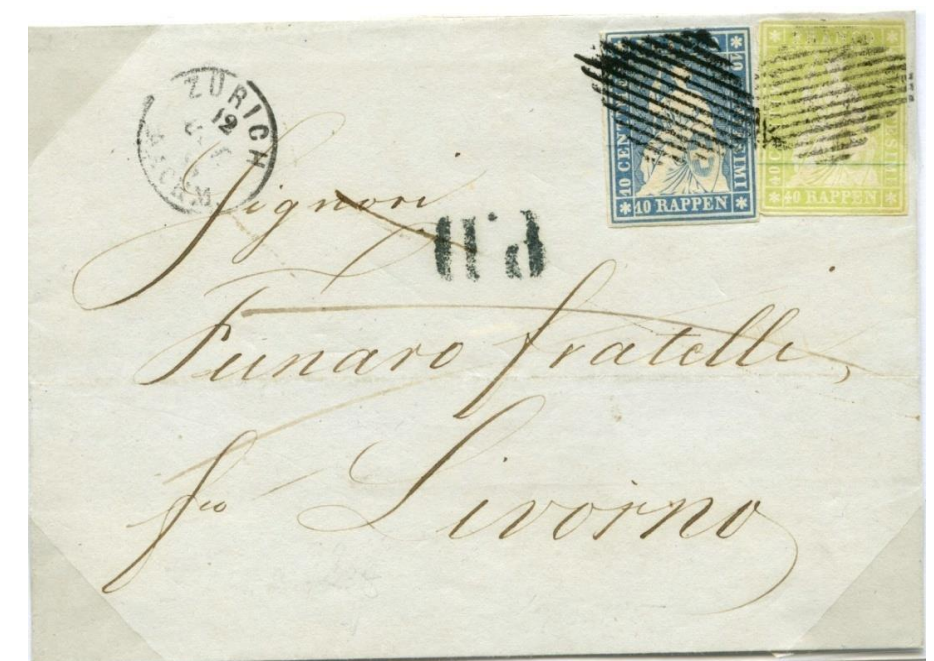 ZÜRICH
12
NACHM
FRANCO
10 CENTIMES
10 CENTESIMI
10 RAPPEN
FRANCO
40 RAPPEN
Signori
P.D.
Funaro fratelli,
fco Livorno